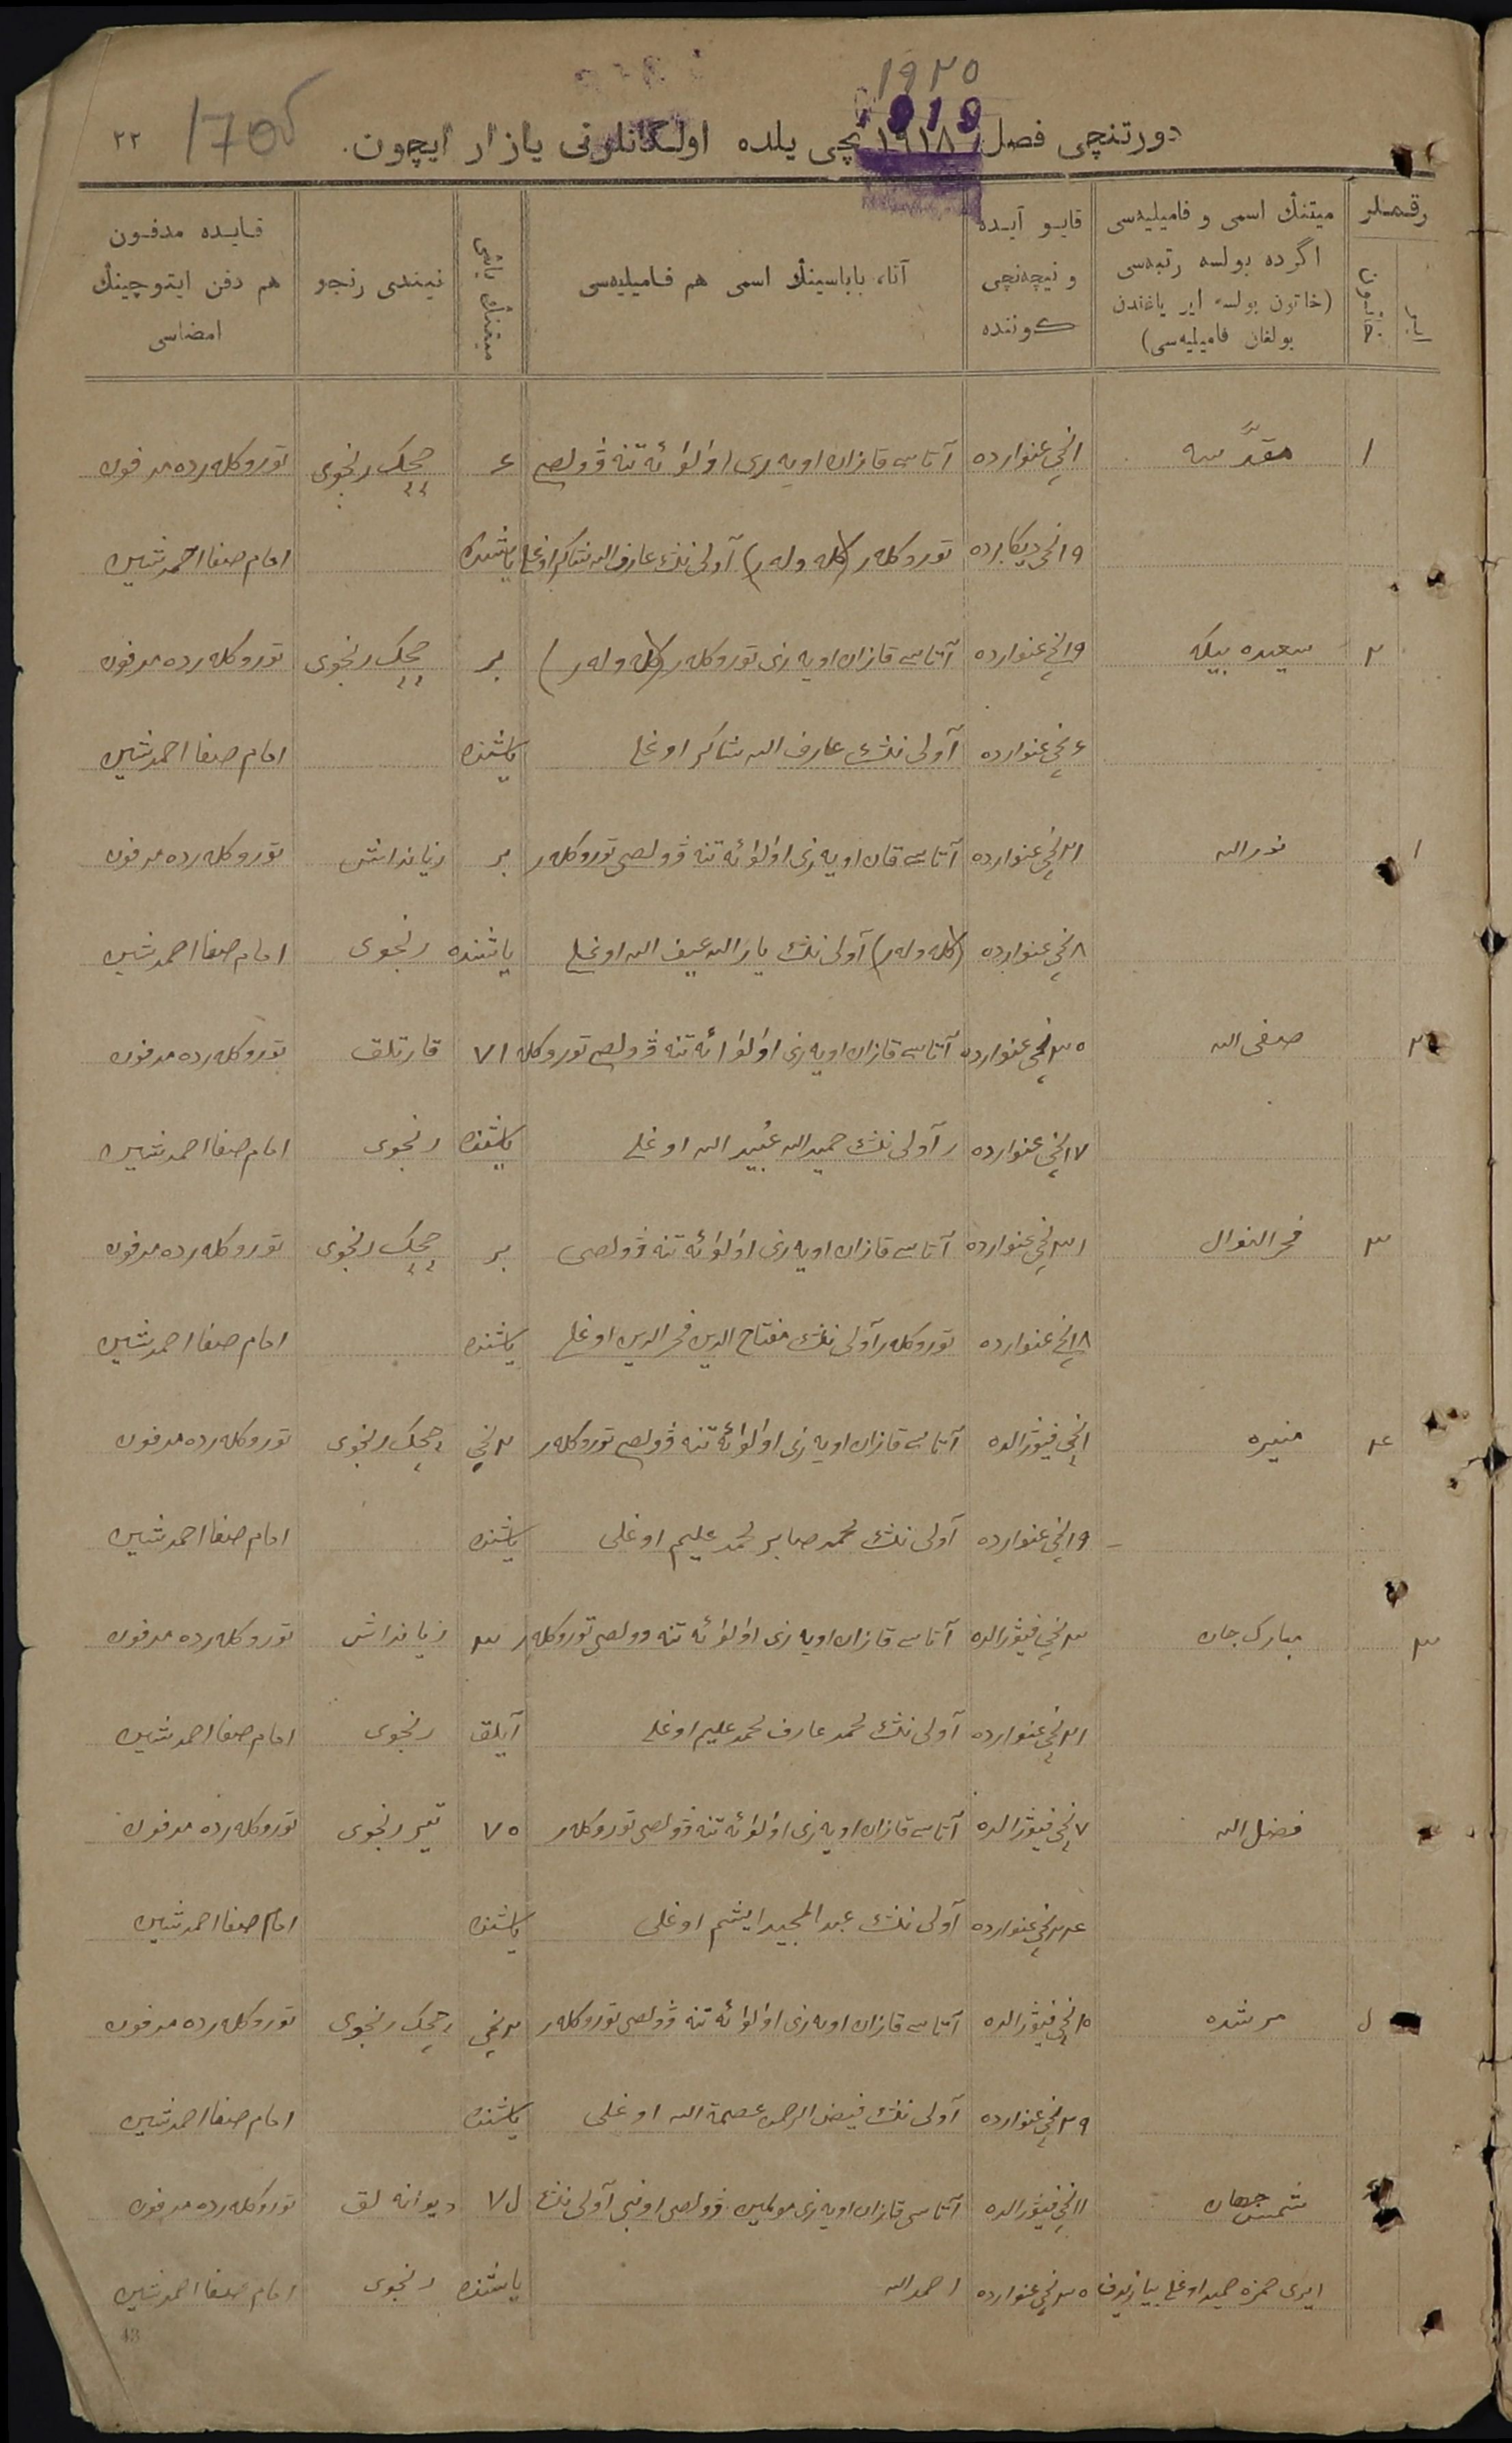 ١٩٢٠
1919
دورتنچی فصل ١٩١٨ نچی یلده اولگانلرنی یازار ایچون.
170
٢٢
رقملر
ایر
خاتون
میتنڭ اسمی و فامیلیه‌سی اگرده بولسه رتبه‌سی (خاتون بولسه ایر یاغندن بولغان فامیلیه‌سی)
قایو آیده و نیچه‌نچی كوننده
آنا، باباسینڭ اسمی هم فامیلیه‌سی
میتنڭ یاشی
نیندی رنجو
قایده مدفون هم دفن ایتوچینڭ امضاسی
١ مقدّسه ١نچی غنوارده آتاسی قازان اویه‌زی اولوئه‌تنه ڤولصی ٤ چچك رنجوی توروكله‌رده مدفون
١٩نچی دیكابرده توروكله‌ر (كله‌وله‌ر) آولی‌نڭ عارف الله شاكر اوغلی یاشنده امام صفا احمدشین
٢ سعیده بیكه ١٩نچی غنوارده آتاسی قازان اویه‌زی توروكله‌ر (كله‌وله‌ر) بر چچك رنجوی توروكله‌رده مدفون
٦نچی غنوارده آولی‌نڭ عارف الله شاكر اوغلی یاشنده امام صفا احمدشین
١ نورالله ٢١نچی غنوارده آتاسی قازان اویه‌زی اولوئه‌تنه ڤولصی توروكله‌ر بر زیانداش توروكله‌رده مدفون
٨نچی غنوارده (كله‌وله‌ر) آولی‌نڭ یارالله عیف الله اوغلی یاشنده رنجوی امام صفا احمدشین
٢ صفی الله ٣٠نچی غنوارده آتاسی قازان اویه‌زی اولوئه‌تنه ڤولصی توروكله ٧١ قارتلق توروكله‌رده مدفون
١٧نچی غنوارده ر آولی‌نڭ حمیدالله عُبید الله اوغلی یاشنده رنجوی امام صفا احمدشین
٣ فخرالنوال ٣١نچی غنوارده آتاسی قازان اویه‌زی اولوئه‌تنه ڤولصی بر چچك رنجوی توروكله‌رده مدفون
١٨نچی غنوارده توروكله‌ر آولی‌نڭ مفتاح الدین فخرالدین اوغلی یاشنده امام صفا احمدشین
٤ منیره ١نچی فیڤرالده آتاسی قازان اویه‌زی اولوئه‌تنه ڤولصی توروكله‌ر ٢نچی چچك رنجوی توروكله‌رده مدفون
١٩نچی غنوارده آولی‌نڭ محمد صابر محمد علیم اوغلی یاشنده امام صفا احمدشین
٣ مبارك جان ٣نچی فیڤرالده آتاسی قازان اویه‌زی اولوئه‌تنه ڤولصی توروكله‌ر ٣ زیانداش توروكله‌رده مدفون
٢١نچی غنوارده آولی‌نڭ محمد عارف محمد علیم اوغلی آیلق رنجوی امام صفا احمدشین
فضل الله ٧نچی فیڤرالده آتاسی قازان اویه‌زی اولوئه‌تنه ڤولصی توروكله‌ر ٧٥ تیر رنجوی توروكله‌رده مدفون
٢٤نچی غنوارده آولی‌نڭ عبدالمجید ایشم اوغلی یاشنده امام صفا احمدشین
٥ مرشده ١٠نچی فیڤرالده آتاسی قازان اویه‌زی اولوئه‌تنه ڤولصی توروكله‌ر ٢نچی چچك رنجوی توروكله‌رده مدفون
٢٩نچی غنوارده آولی‌نڭ فیض الرحمن عصمة الله اوغلی یاشنده امام صفا احمدشین
شمس جهان ١١نچی فیڤرالده آتاسی قازان اویه‌زی ڤولصی آولی‌نڭ ٧٥ دیوانه‌لق توروكله‌رده مدفون
ایری حمزه حمید اوغلی بیازیدف ٣٠نچی غنوارده احمدالله یاشنده رنجوی امام صفا احمدشین
43